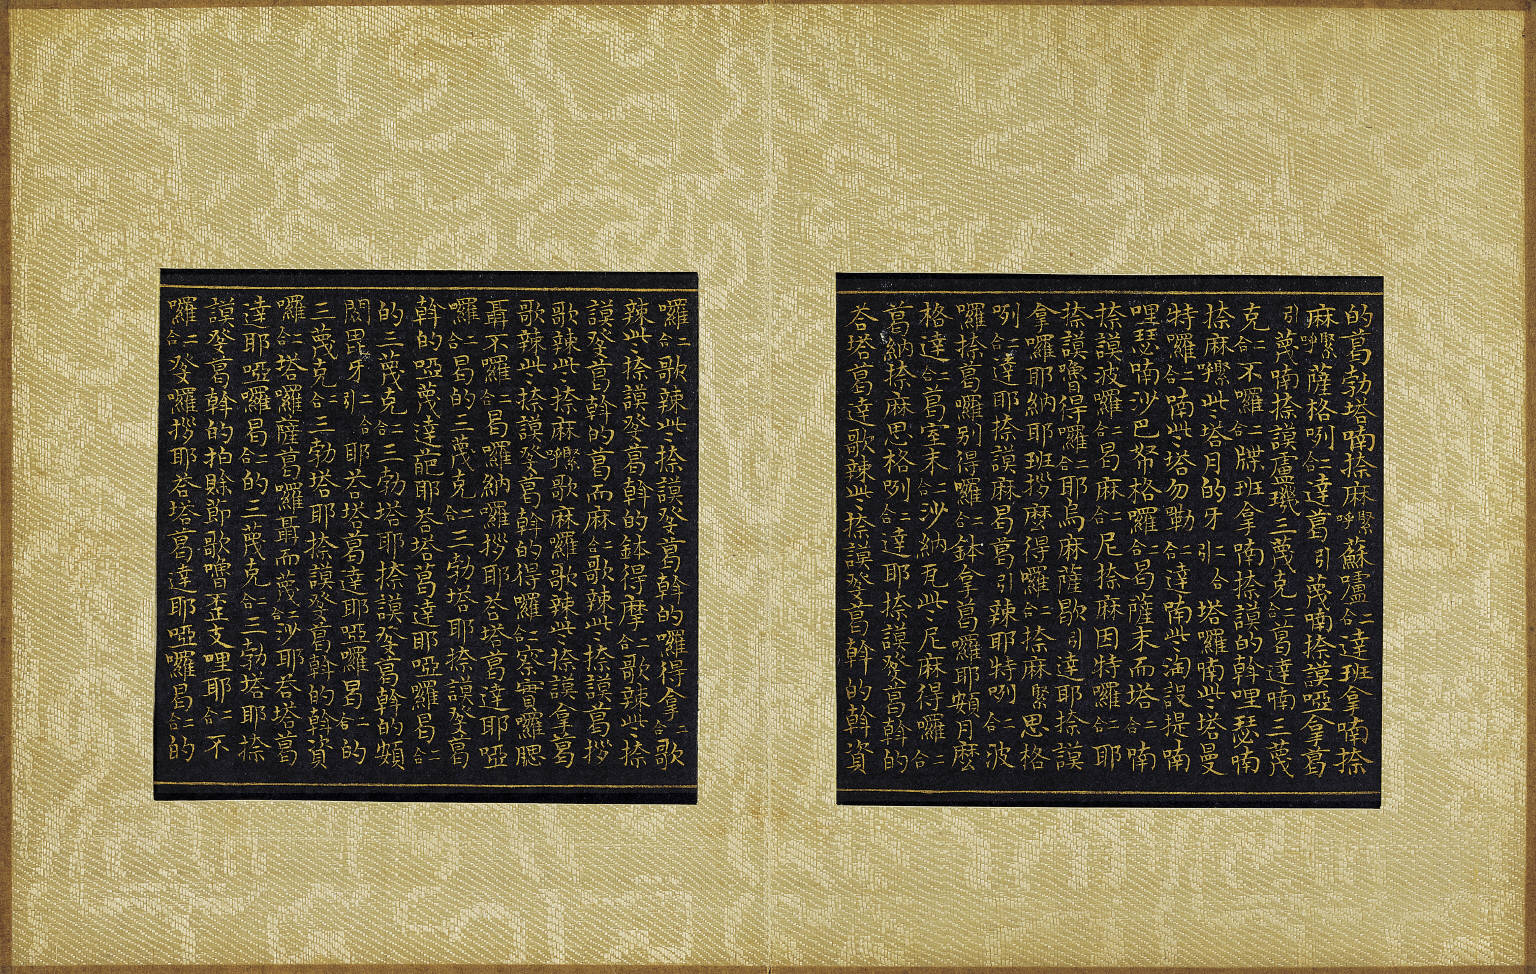 的葛勃塔喃捺麻㗚蘇嚧二合達班拿喃捺
麻㗚薩格咧二合達葛引葛喃捺謨啞拿葛
引葛喃捺謨盧璣三莈克二合葛達喃三莈
克二合不囉二合牒班拿喃捺謨的斡哩瑟喃
捺麻㗚些塔月的牙二合引塔囉喃些塔曼
特囉二合喃些塔勿勒二合達喃些淘設提喃
哩瑟喃沙巴帑格囉二合曷薩末而塔二合喃
捺謨波囉二合曷麻二合尼捺麻因特囉二合耶
捺謨嚕得囉二合耶烏麻薩歇引達耶捺謨
拿囉耶納耶班拶麽得囉二合捺麻思格
咧二合達耶捺謨麻曷葛引辣耶特咧二合波
囉捺葛囉別得囉二合鉢拿葛囉耶頞月麽
格達二合葛室末二合沙納瓦些尼麻得囉二合
葛納捺麻思格咧二合達耶捺謨癹葛斡的
荅塔葛達歌辣些捺謨癹葛斡的斡資
囉二合歌辣些捺謨癹葛斡的囉得拿二合歌
辣些捺謨癹葛斡的鉢得摩二合歌辣些捺
謨癹葛斡的葛而麻二合歌辣些捺謨葛拶
歌辣些捺麻㗚歌麻囉歌辣些捺謨拿葛
歌辣些捺謨癹葛斡的得囉二合嚓實囉腮
聶不囉二合曷囉納囉拶耶荅塔葛達耶啞
囉二合曷的三莈克二合三勃塔耶捺謨癹葛
斡的啞莈達葩耶荅塔葛達耶啞囉曷二合
的三莈克二合三勃塔耶捺謨癹葛斡的頞
閦毘牙二合引耶荅塔葛達耶啞囉曷二合的
三莈克二合三勃塔耶捺謨癹葛斡的斡資
囉二合塔囉薩葛囉聶而莈二合沙耶荅塔葛
達耶啞囉曷二合的三莈克二合三勃塔耶捺
謨癹葛斡的拍賒即歌嚕丕支哩耶二合不
囉二合癹囉拶耶荅塔葛達耶啞囉曷二合的